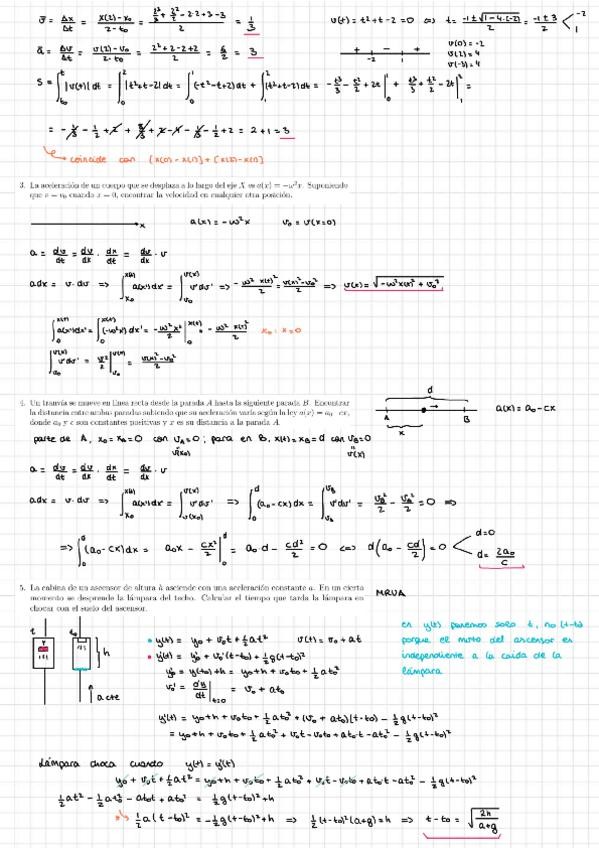 v̄ = Δx/Δt = (x(2)-x₀)/(2-t₀) = (2³/3 + 2²/2 - 2·2 + 3 - 3)/2 = 1/3
v(t) = t²+t-2 = 0 ⇔ t = (-1±√(1-4·(-2)))/2 = (-1±3)/2 < -2, 1
ā = Δv/Δt = (v(2)-v₀)/(2-t₀) = (2²+2-2+2)/2 = 6/2 = 3
+ - +
-2 1
v(0) = -2
v(2) = 4
v(-3) = 4
S = ∫_{t₀}^{t} |v(t)| dt = ∫_0^2 |t²+t-2| dt = ∫_0^1 (-t²-t+2) dt + ∫_1^2 (t²+t-2) dt = -t³/3 - t²/2 + 2t |_0^1 + t³/3 + t²/2 - 2t |_1^2 =
= -1/3 - 1/2 + 2 + 8/3 + 2 - 4 - 1/3 - 1/2 + 2 = 2+1 = 3
coincide con |x(0)-x(1)| + |x(2)-x(1)|
3. La aceleración de un cuerpo que se desplaza a lo largo del eje X es a(x) = −ω²x. Suponiendo
que v = v₀ cuando x = 0, encontrar la velocidad en cualquier otra posición.
x
a(x) = -ω²x v₀ = v(x=0)
a = dv/dt = dv/dx · dx/dt = dv/dx · v
a dx = v · dv ⇒ ∫_{x₀}^{x(t)} a(x')dx' = ∫_{v₀}^{v(x)} v'dv' ⇒ -ω² x(t)²/2 = (v(x)²-v₀²)/2 ⇒ v(x) = √(-ω²x(t)² + v₀²)
∫_{x₀}^{x(t)} a(x')dx' = ∫_0^{x(t)} (-ω²x') dx' = -ω² x²/2 |_0^{x(t)} = -ω² x(t)²/2 x₀ : x=0
∫_{v₀}^{v(x)} v'dv' = v²/2 |_{v₀}^{v(x)} = (v(x)²-v₀²)/2
4. Un tranvía se mueve en línea recta desde la parada A hasta la siguiente parada B. Encontrar
la distancia entre ambas paradas sabiendo que su aceleración varía según la ley a(x) = a₀ − cx,
donde a₀ y c son constantes positivas y x es su distancia a la parada A.
d
A B
x
a(x) = a₀ - cx
parte de A, x₀ = x_A = 0 con v_A = 0 ; para en B, x(t) = x_B = d con v_B = 0
v(x₀) v(x)
a = dv/dt = dv/dx · dx/dt = dv/dx · v
a dx = v · dv ⇒ ∫_{x₀}^{x(t)} a(x')dx' = ∫_{v(x₀)}^{v(x)} v'dv' ⇒ ∫_0^d (a₀-cx) dx = ∫_{v_A}^{v_B} v'dv' = v_B²/2 - v_A²/2 = 0 ⇒
⇒ ∫_0^d (a₀-cx) dx = a₀x - cx²/2 |_0^d = a₀d - cd²/2 = 0 ⇔ d(a₀ - cd/2) = 0 < d=0, d = 2a₀/c
5. La cabina de un ascensor de altura h asciende con una aceleración constante a. En un cierto
momento se desprende la lámpara del techo. Calcular el tiempo que tarda la lámpara en
chocar con el suelo del ascensor.
MRUA
t t₀
h
a cte
y(t) = y₀ + v₀t + ½at² v(t) = v₀ + at
y'(t) = y₀' + v₀'(t-t₀) + ½g(t-t₀)²
y₀' = y(t₀) + h = y₀ + h + v₀t₀ + ½at₀²
v₀' = dy/dt |_{t=0} = v₀ + at₀
en y(t) ponemos solo t, no (t-t₀)
porque el mvto del ascensor es
independiente a la caída de la
lámpara
y'(t) = y₀+h + v₀t₀ + ½at₀² + (v₀ + at₀)(t-t₀) - ½g(t-t₀)²
= y₀+h + v₀t₀ + ½at₀² + v₀t - v₀t₀ + at₀t - at₀² - ½g(t-t₀)²
lámpara choca cuando y(t) = y'(t)
y₀ + v₀t + ½at² = y₀+h + v₀t₀ + ½at₀² + v₀t - v₀t₀ + at₀t - at₀² - ½g(t-t₀)²
½at² - ½at₀² - at₀t + at₀² = ½g(t-t₀)² + h
½a(t-t₀)² = -½g(t-t₀)² + h ⇒ ½(t-t₀)²(a+g) = h ⇒ t-t₀ = √(2h/(a+g))